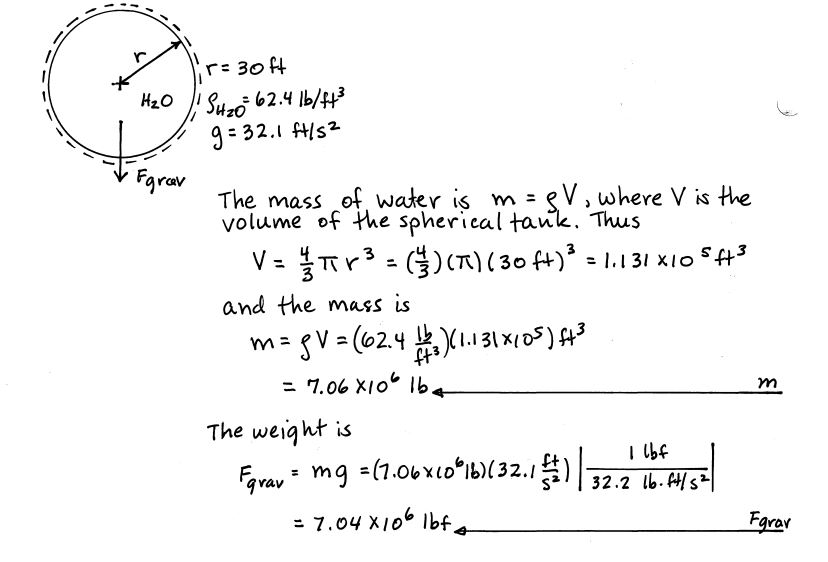 r
r = 30 ft
H2O
ρH2O = 62.4 lb/ft³
g = 32.1 ft/s²
Fgrav
The mass of water is m = ρV, where V is the
volume of the spherical tank. Thus
V = 4/3 π r³ = (4/3)(π)(30 ft)³ = 1.131 x10⁵ ft³
and the mass is
m = ρV = (62.4 lb/ft³)(1.131x10⁵) ft³
= 7.06 x10⁶ lb m
The weight is
Fgrav = mg = (7.06x10⁶ lb)(32.1 ft/s²) | 1 lbf / 32.2 lb·ft/s² |
= 7.04 x10⁶ lbf Fgrav